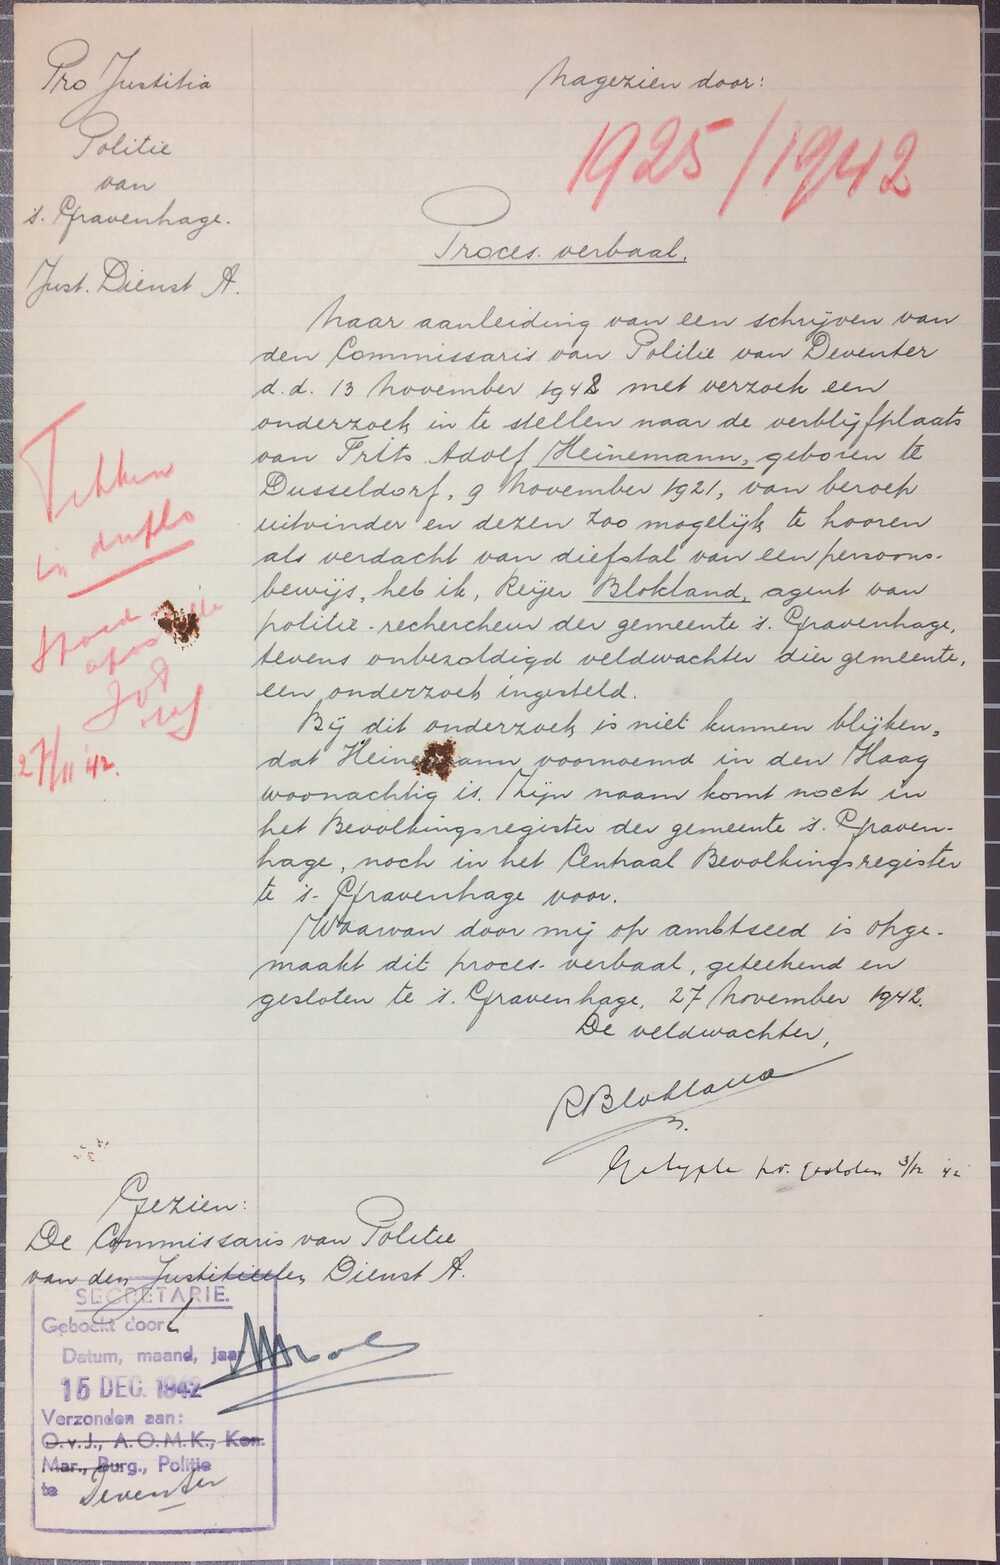 Pro Justitia
Politie
van
's. Gravenhage.
Just. Dienst A.
Nagezien door:
1925/1942
Proces-verbaal.
Naar aanleiding van een schrijven van
den Commissaris van Politie van Deventer
d.d. 13 November 1942 met verzoek een
onderzoek in te stellen naar de verblijfplaats
van Frits Adolf Heinemann, geboren te
Dusseldorf, 9 November 1921, van beroep
uitvinder en dezen zoo mogelijk te hooren
als verdacht van diefstal van een persoons-
bewijs, heb ik, Reijer Blokland, agent van
politie-rechercheur der gemeente 's. Gravenhage,
tevens onbezoldigd veldwachter dier gemeente,
een onderzoek ingesteld.
Bij dit onderzoek is niet kunnen blijken,
dat Heinemann voornoemd in den Haag
woonachtig is. Zijn naam komt noch in
het Bevolkingsregister der gemeente 's. Graven-
hage, noch in het Centraal Bevolkingsregister
te 's-Gravenhage voor.
Waarvan door mij op ambtseed is opge-
maakt dit proces-verbaal, geteekend en
gesloten te 's. Gravenhage, 27 November 1942.
De veldwachter,
RBlokland
Getypte
3/12 42
in duplo
spoed
27/11 '42.
Gezien:
De Commissaris van Politie
van den Justitieelen Dienst A.
SECRETARIE.
Geboekt door
Datum, maand, jaar
15 DEC. 1942
Verzonden aan:
O.v.J., A.O.M.K., Kon.
Mar., Burg., Politie
te Deventer